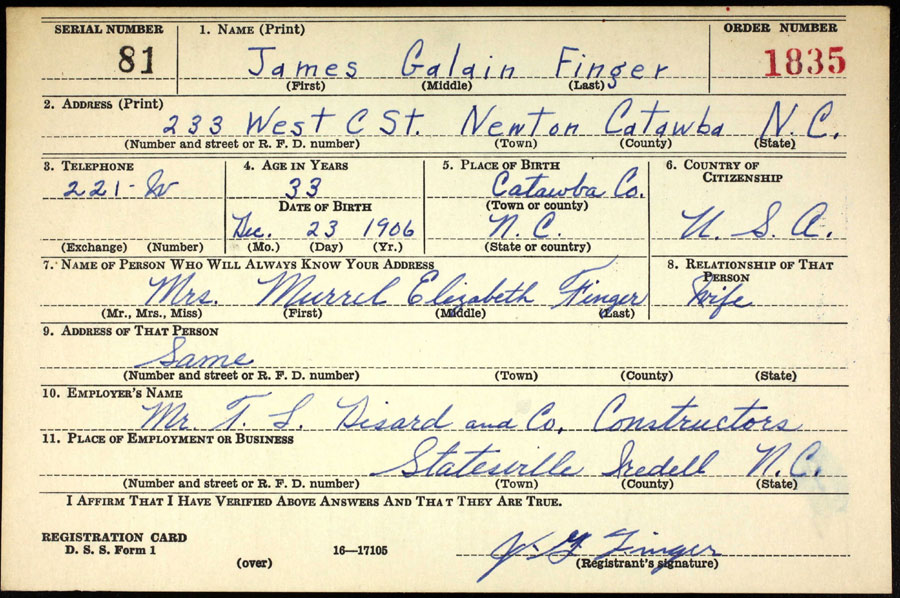 SERIAL NUMBER 1. NAME (Print) ORDER NUMBER
81 James Galain Finger 1835
(First) (Middle) (Last)
2. ADDRESS (Print)
233 West C St. Newton Catawba N.C.
(Number and street or R. F. D. number) (Town) (County) (State)
3. TELEPHONE 4. AGE IN YEARS 5. PLACE OF BIRTH 6. COUNTRY OF CITIZENSHIP
221-W 33 Catawba Co.
DATE OF BIRTH (Town or county)
Dec. 23 1906 N.C. U.S.A.
(Exchange) (Number) (Mo.) (Day) (Yr.) (State or country)
7. NAME OF PERSON WHO WILL ALWAYS KNOW YOUR ADDRESS 8. RELATIONSHIP OF THAT PERSON
Mrs. Murrel Elizabeth Finger Wife
(Mr., Mrs., Miss) (First) (Middle) (Last)
9. ADDRESS OF THAT PERSON
Same
(Number and street or R. F. D. number) (Town) (County) (State)
10. EMPLOYER'S NAME
Mr. T. L. and Co. Constructors
11. PLACE OF EMPLOYMENT OR BUSINESS
Statesville Iredell N.C.
(Number and street or R. F. D. number) (Town) (County) (State)
I AFFIRM THAT I HAVE VERIFIED ABOVE ANSWERS AND THAT THEY ARE TRUE.
REGISTRATION CARD
D. S. S. Form 1 16—17105 J. G. Finger
(over) (Registrant's signature)